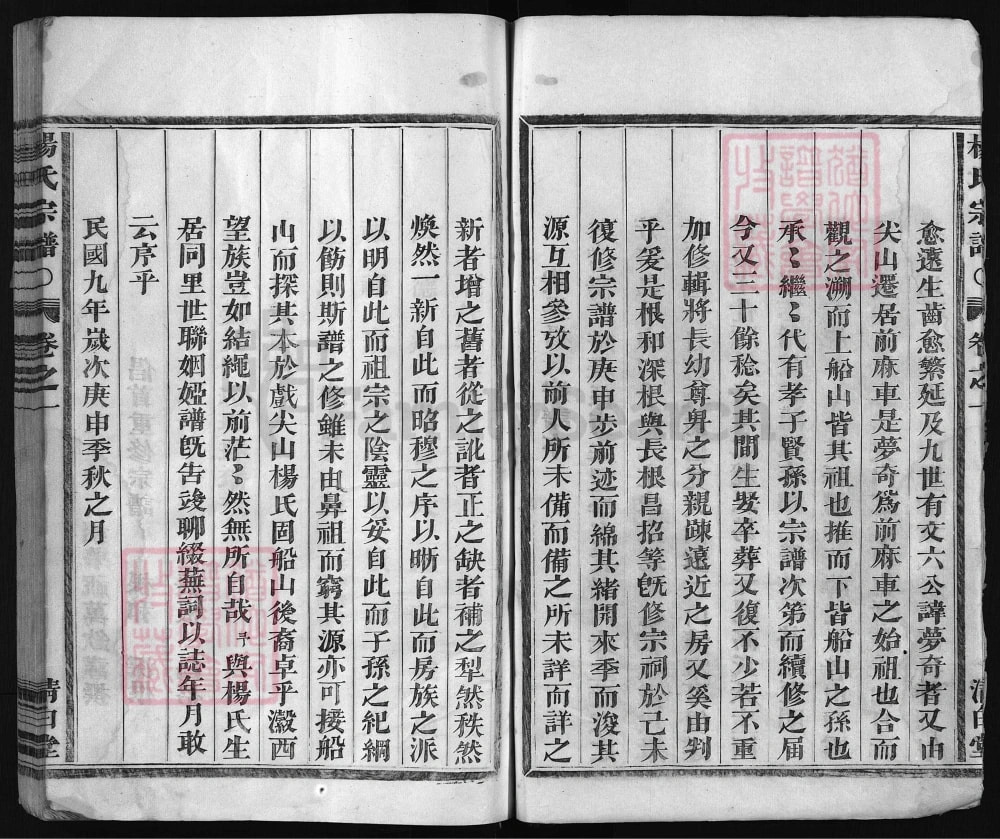 楊氏宗譜
卷之一
清白堂
愈遠生齒愈繁延及九世有文六公諱夢奇者又由
尖山遷居前麻車是夢奇爲前麻車之始祖也合而
觀之溯而上船山皆其祖也推而下皆船山之孫也
承〻繼〻代有孝子賢孫以宗譜次第而續修之屆
今又三十餘稔矣其間生娶卒葬又復不少若不重
加修輯將長幼尊卑之分親疎遠近之房又奚由判
乎爰是根和深根與長根昌招等旣修宗祠於己未
復修宗譜於庚申步前迹而綿其緒開來季而浚其
源互相參攷以前人所未備而備之所未詳而詳之
新者增之舊者從之訛者正之缺者補之犁然秩然
煥然一新自此而昭穆之序以晰自此而房族之派
以明自此而祖宗之陰靈以妥自此而子孫之紀綱
以飭則斯譜之修雖未由鼻祖而窮其源亦可接船
山而探其本於戲尖山楊氏固船山後裔卓乎瀫西
望族豈如結繩以前茫〻然無所自哉 與楊氏生
居同里世聯姻婭譜旣告竣聊綴蕪詞以誌年月敢
云序乎
民國九年歲次庚申季秋之月
楊氏宗譜
卷之一
清白堂